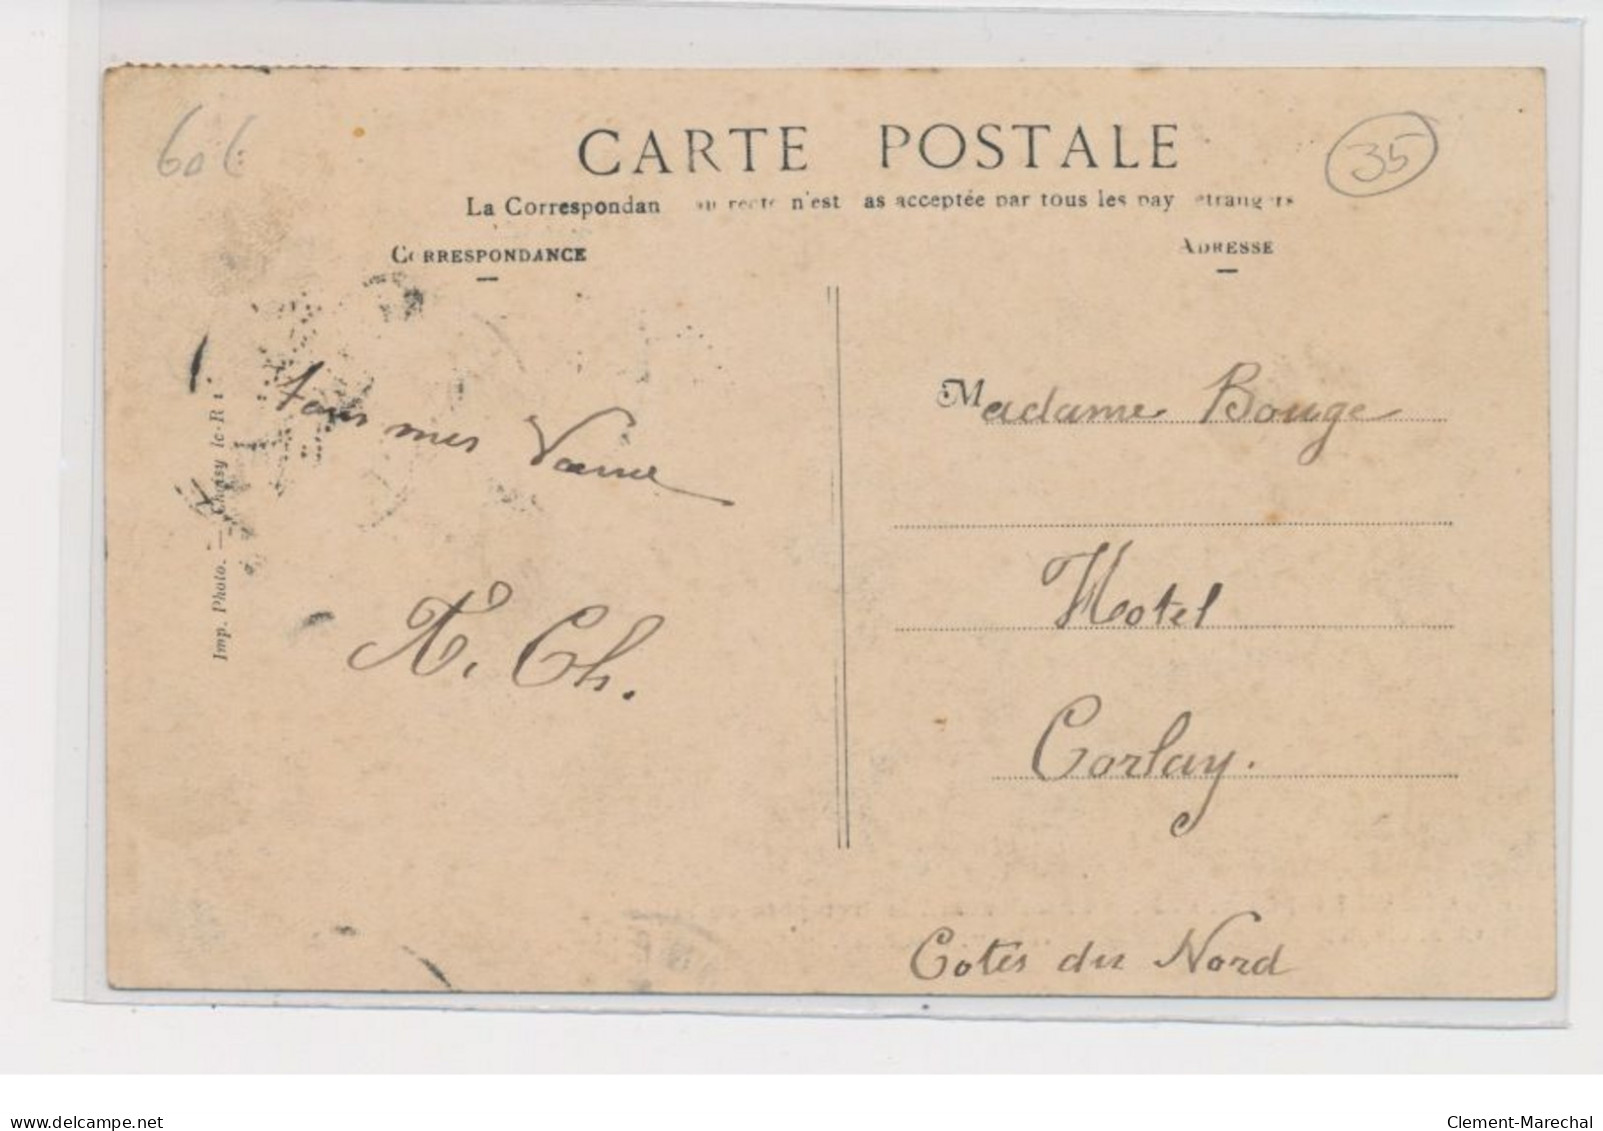 60€
CARTE POSTALE
35
La Correspondan au recto n'est as acceptée par tous les pay etrangers
CORRESPONDANCE
ADRESSE
Tous mes
X. Ch.
Imp. Photo. — Choisy-le-R
Madame Bouge
Hotel
Corlay.
Côtes du Nord
www.delcampe.net
Clement-Marechal